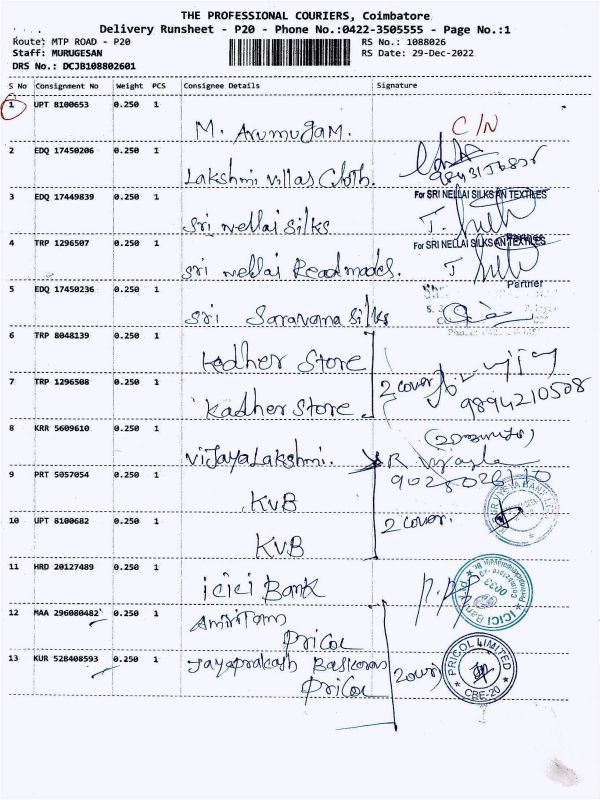 THE PROFESSIONAL COURIERS, Coimbatore
Delivery Runsheet - P20 - Phone No.:0422-3505555 - Page No.:1
Route: MTP ROAD - P20 RS No.: 1088026
Staff: MURUGESAN RS Date: 29-Dec-2022
DRS No.: DCJB108802601
S No Consignment No Weight PCS Consignee Details Signature
1 UPT 8100653 0.250 1
M. Arumugam. C/N
2 EDQ 17450206 0.250 1
Lakshmi Villas Cloth.
3 EDQ 17449839 0.250 1 For SRI NELLAI SILKS AN TEXTILES
Sri Nellai Silks
Partner
4 TRP 1296507 0.250 1 For SRI NELLAI SILKS AN TEXTILES
Sri Nellai Readmades.
Partner
5 EDQ 17450236 0.250 1
Sri Saravana Silks
6 TRP 8048139 0.250 1
Kadher Store
7 TRP 1296508 0.250 1 2 cover
Kadher Store 9894210508
8 KRR 5609610 0.250 1
Vijaya Lakshmi.
9 PRT 5057054 0.250 1
KVB
10 UPT 8100682 0.250 1 2 cover.
KVB
11 HRD 20127489 0.250 1
icici Bank
ICICI Bank
12 MAA 296080482 0.250 1
Pricol
13 KUR 528408593 0.250 1
Jayaprakash Baskaran
Pricol
PRICOL LIMITED
CBE-20